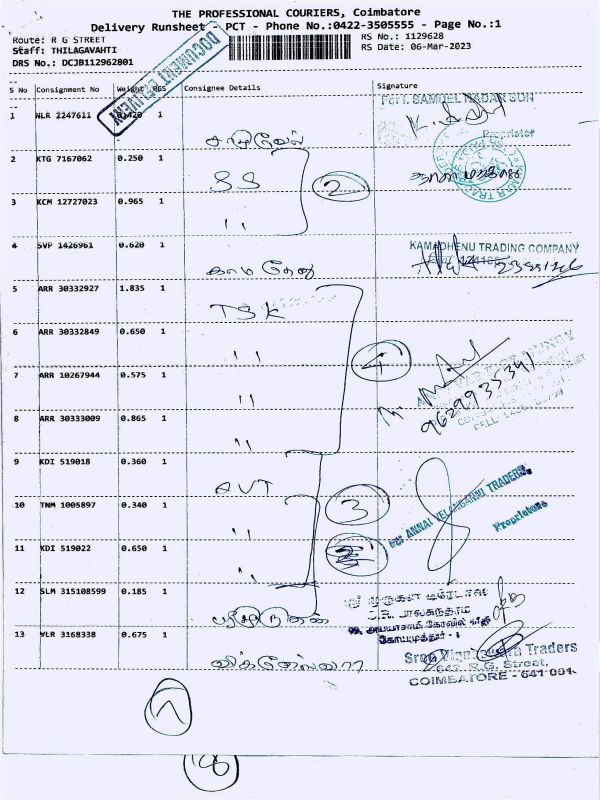 THE PROFESSIONAL COURIERS, Coimbatore
Delivery Runsheet - PCT - Phone No.:0422-3505555 - Page No.:1
Route: R G STREET
Staff: THILAGAVAHTI
DRS No.: DCJB112962801
RS No.: 1129628
RS Date: 06-Mar-2023
DOCUMENT DELIVERY
S No Consignment No Weight PCS Consignee Details Signature
1 NLR 2247611 0.420 1
Proprietor
2 KTG 7167062 0.250 1 SS
2
3 KCM 12727023 0.965 1 ,,
4 SVP 1426961 0.620 1 காமதேனு
KAMADHENU TRADING COMPANY
5 ARR 30332927 1.835 1 TSK
6 ARR 30332849 0.650 1 ,,
7 ARR 10267944 0.575 1 ,,
4
9629935341
8 ARR 30333009 0.865 1 ,,
9 KDI 519018 0.360 1 AVT
10 TNM 1005897 0.340 1 ,,
3
For ANNAI VELANGANNI TRADERS
Proprietors
11 KDI 519022 0.650 1 ,,
12 SLM 315108599 0.185 1
கோயமுத்தூர் - 1
13 VLR 3168338 0.675 1
Traders
642, R.G. Street,
COIMBATORE - 641 001.
7
18